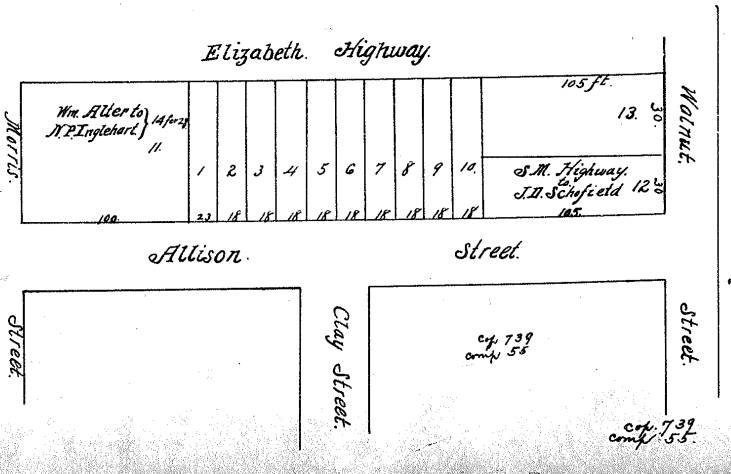 Elizabeth. Highway.
Morris.
Wm. Alter to
N.P. Inglehart } 14 for 28
11.
1 2 3 4 5 6 7 8 9 10.
105 ft.
13. 30.
Walnut.
S.M. Highway.
to
J.D. Schofield 12 30
105.
100. 23 18 18 18 18 18 18 18 18 18
Allison. Street.
Street.
Clay Street.
cop. 739
comp 55
Street.
cop. 739
comp 55.